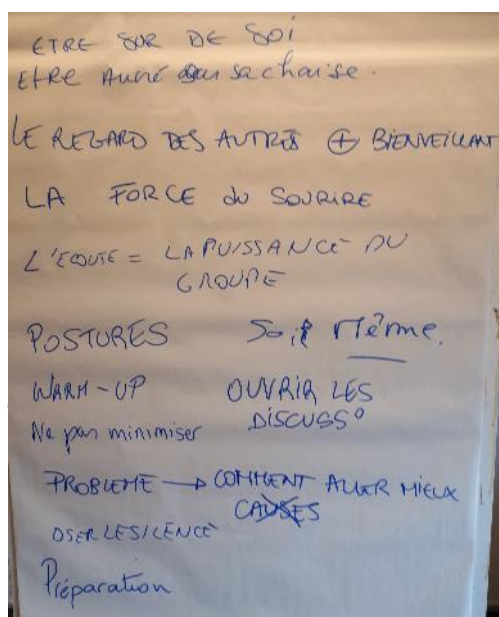 ETRE SUR DE SOI
EtRE Ancré sur sa chaise.
LE REGARD DES AUTRES ⊕ BIENVEILLANT
LA FORCE du SOURIRE
L'ECOUTE = LA PUISSANCE DU
GROUPE
POSTURES Soi Même.
WARM-UP OUVRIR LES
Ne pas minimiser DISCUSS°
PROBLEME → COMMENT ALLER MIEUX
CAUSES
OSER LE SILENCE
Préparation